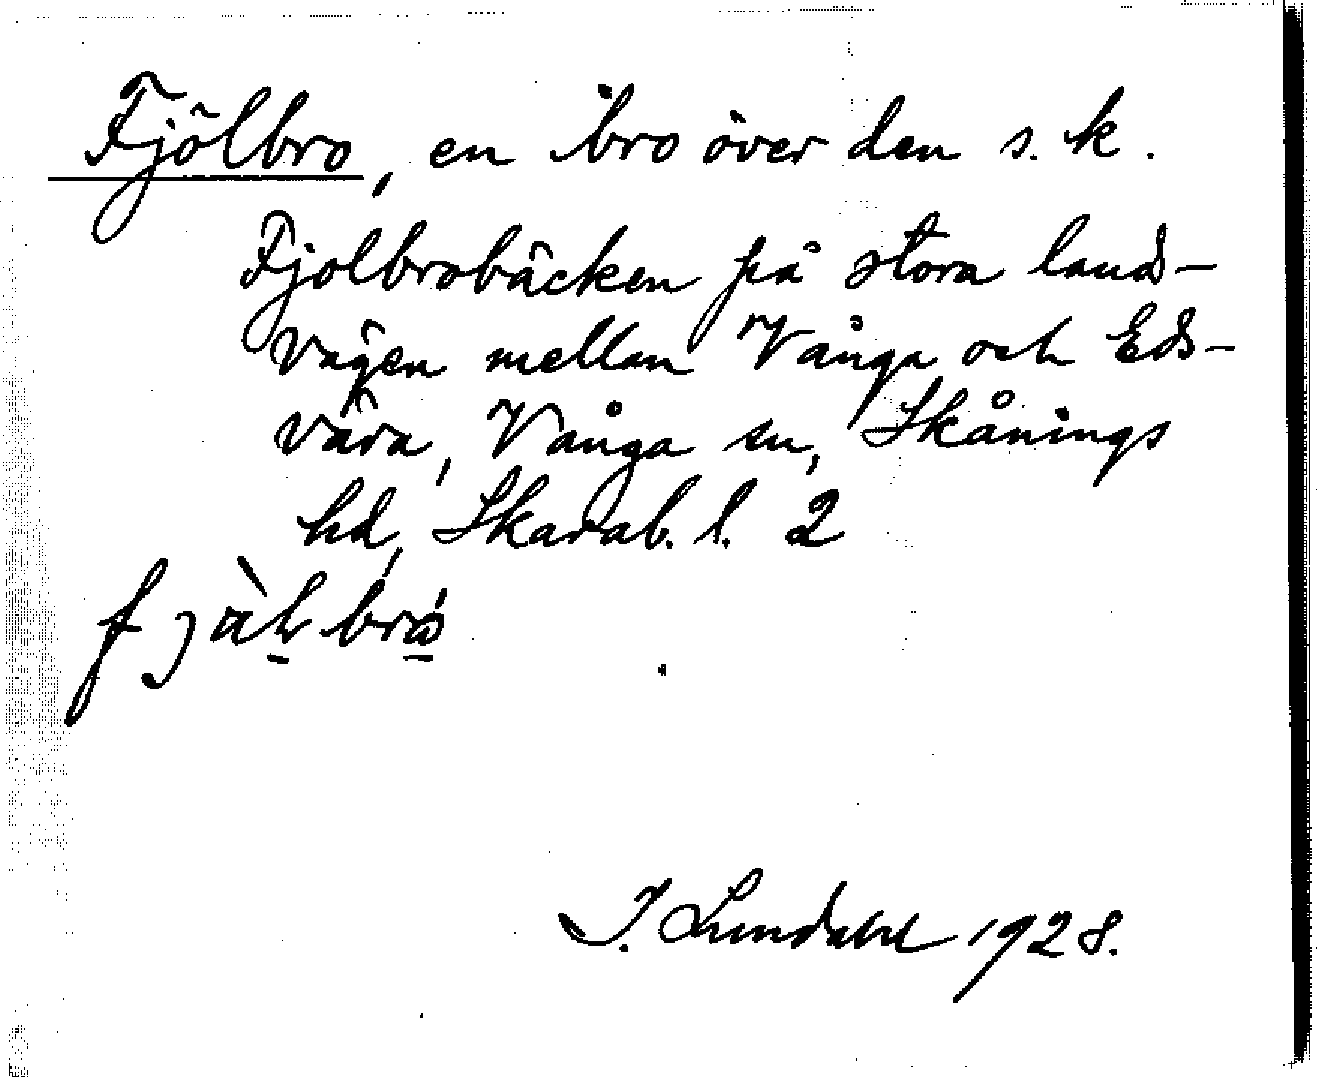 Fjölbro, en bro över den s. k.
Fjolbrobäcken på stora lands-
vägen mellan Vånga och Eds-
våra, Vånga sn, Skånings
hd, Skarab. l. 2
I. Lundahl 1928.